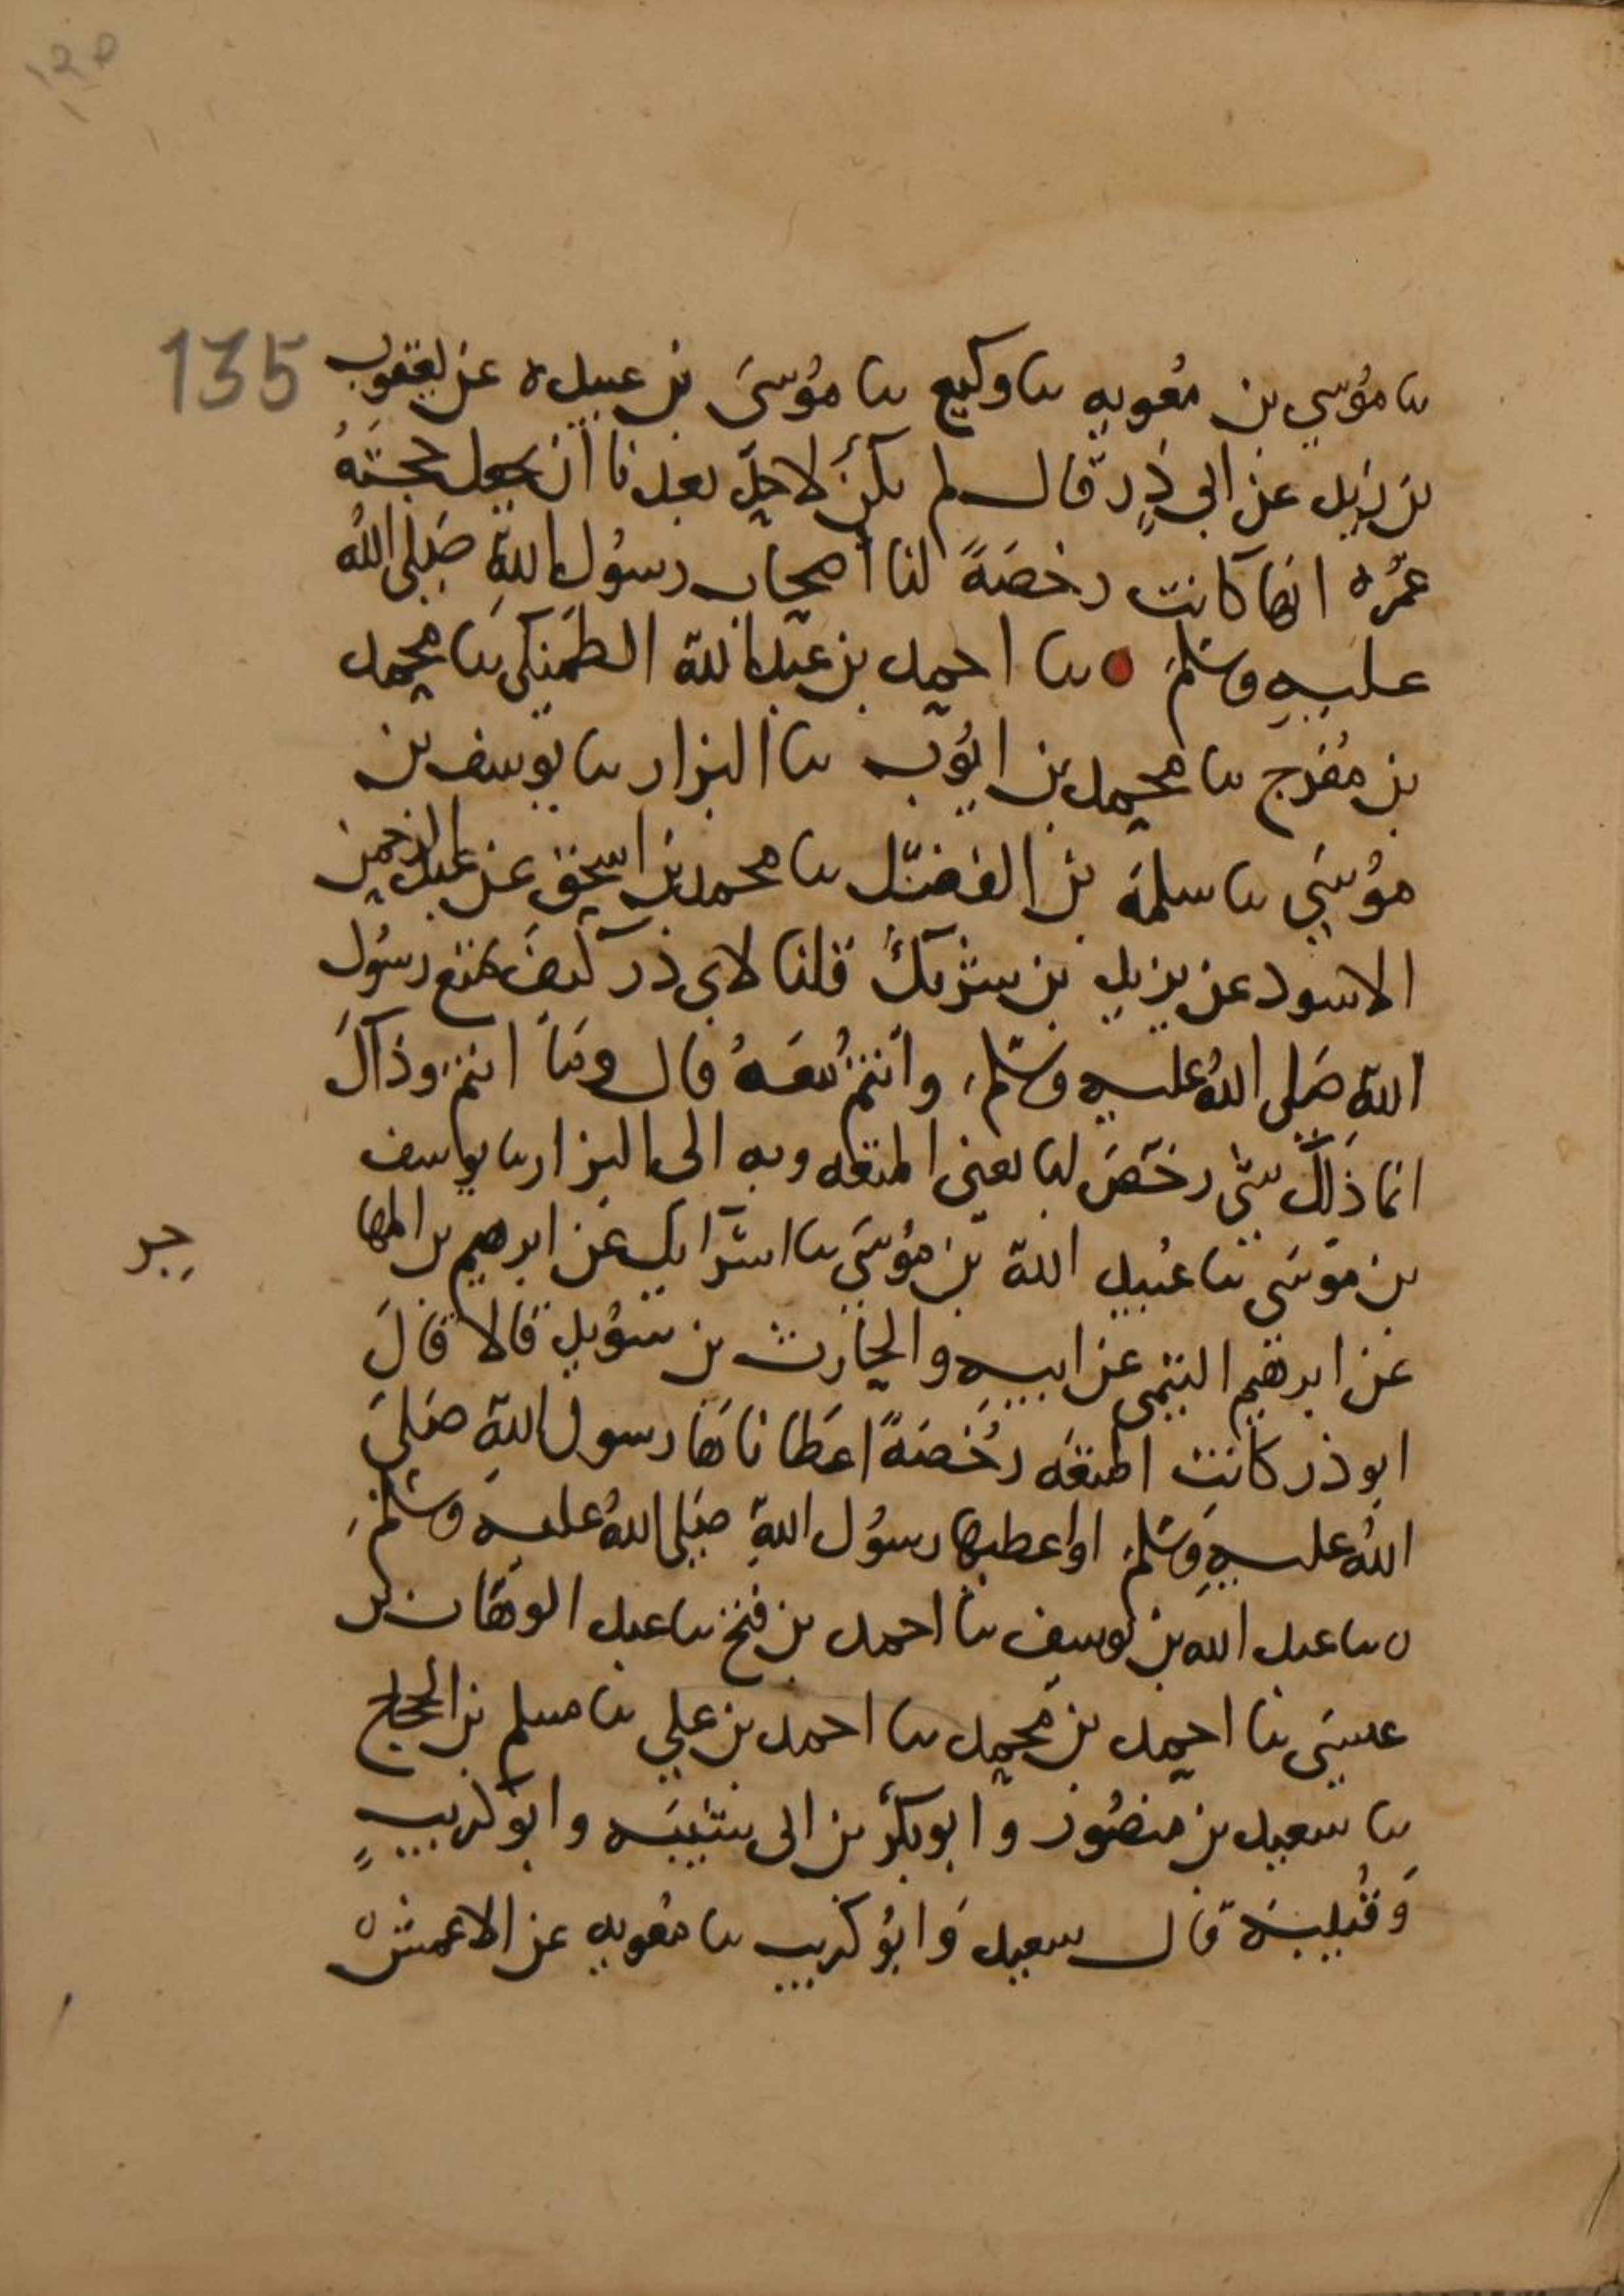 135
ثنا موسى بن معويه ثنا وكيع ثنا موسى بن عبيده عن يعقوب
بن زيد عن ابي ذر قال لم يكن لاحد بعدنا أن يجعل حجته
عمره انها كانت رخصة لنا أصحاب رسول الله صلى الله
عليه وسلم ثنا احمد بن عبد الله الطلمنكي ثنا محمد
بن مفرج ثنا محمد بن ايوب ثنا البزار ثنا يوسف بن
موسى ثنا سلمة بن الفضل ثنا محمد بن اسحق عن عبد الرحمن
الاسود عن يزيد بن شريك قلنا لابي ذر كيف تمتع رسول
الله صلى الله عليه وسلم وأنتم معه قال وما انتم وذاك
انما ذلك شي رخص لنا يعني المتعه وبه الى البزار ثنا يوسف
بن موسى ثنا عبيد الله بن موسى ثنا اسرايل عن ابرهيم بن المها
جر
عن ابرهيم التيمي عن ابيه والحارث بن سويد قالا قال
ابو ذر كانت المتعه رخصة اعطاناها رسول الله صلى
الله عليه وسلم او اعطيها رسول الله صلى الله عليه وسلم
ثنا عبد الله بن يوسف ثنا احمد بن فتح ثنا عبد الوهاب بن
عيسى ثنا احمد بن محمد ثنا احمد بن علي ثنا مسلم بن الحجاج
ثنا سعيد بن منصور وابو بكر بن ابي شيبه وابو كريب
وقتيبة قال سعيد وابو كريب ثنا معويه عن الاعمش